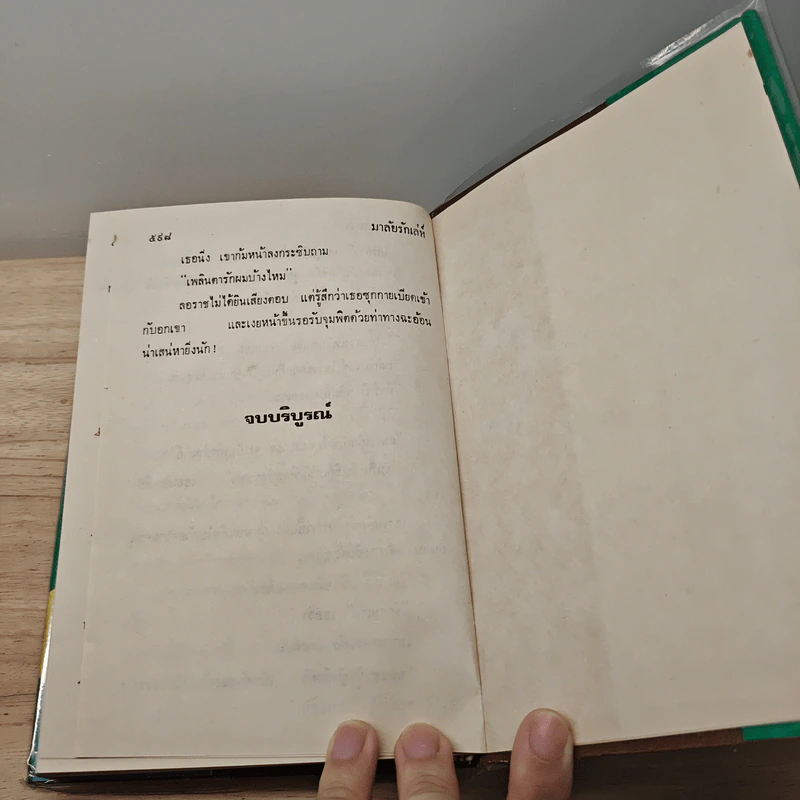 ๕๙๘ มาลัยรักเล่ห์
เธอนิ่ง เขาก้มหน้าลงกระซิบถาม
"เพลินตารักผมบ้างไหม"
ลอราชไม่ได้ยินเสียงตอบ แต่รู้สึกว่าเธอซุกกายเบียดเข้า
กับอกเขา และเงยหน้าขึ้นรอรับจุมพิตด้วยท่าทางฉะอ้อน
น่าเสน่หายิ่งนัก!
จบบริบูรณ์